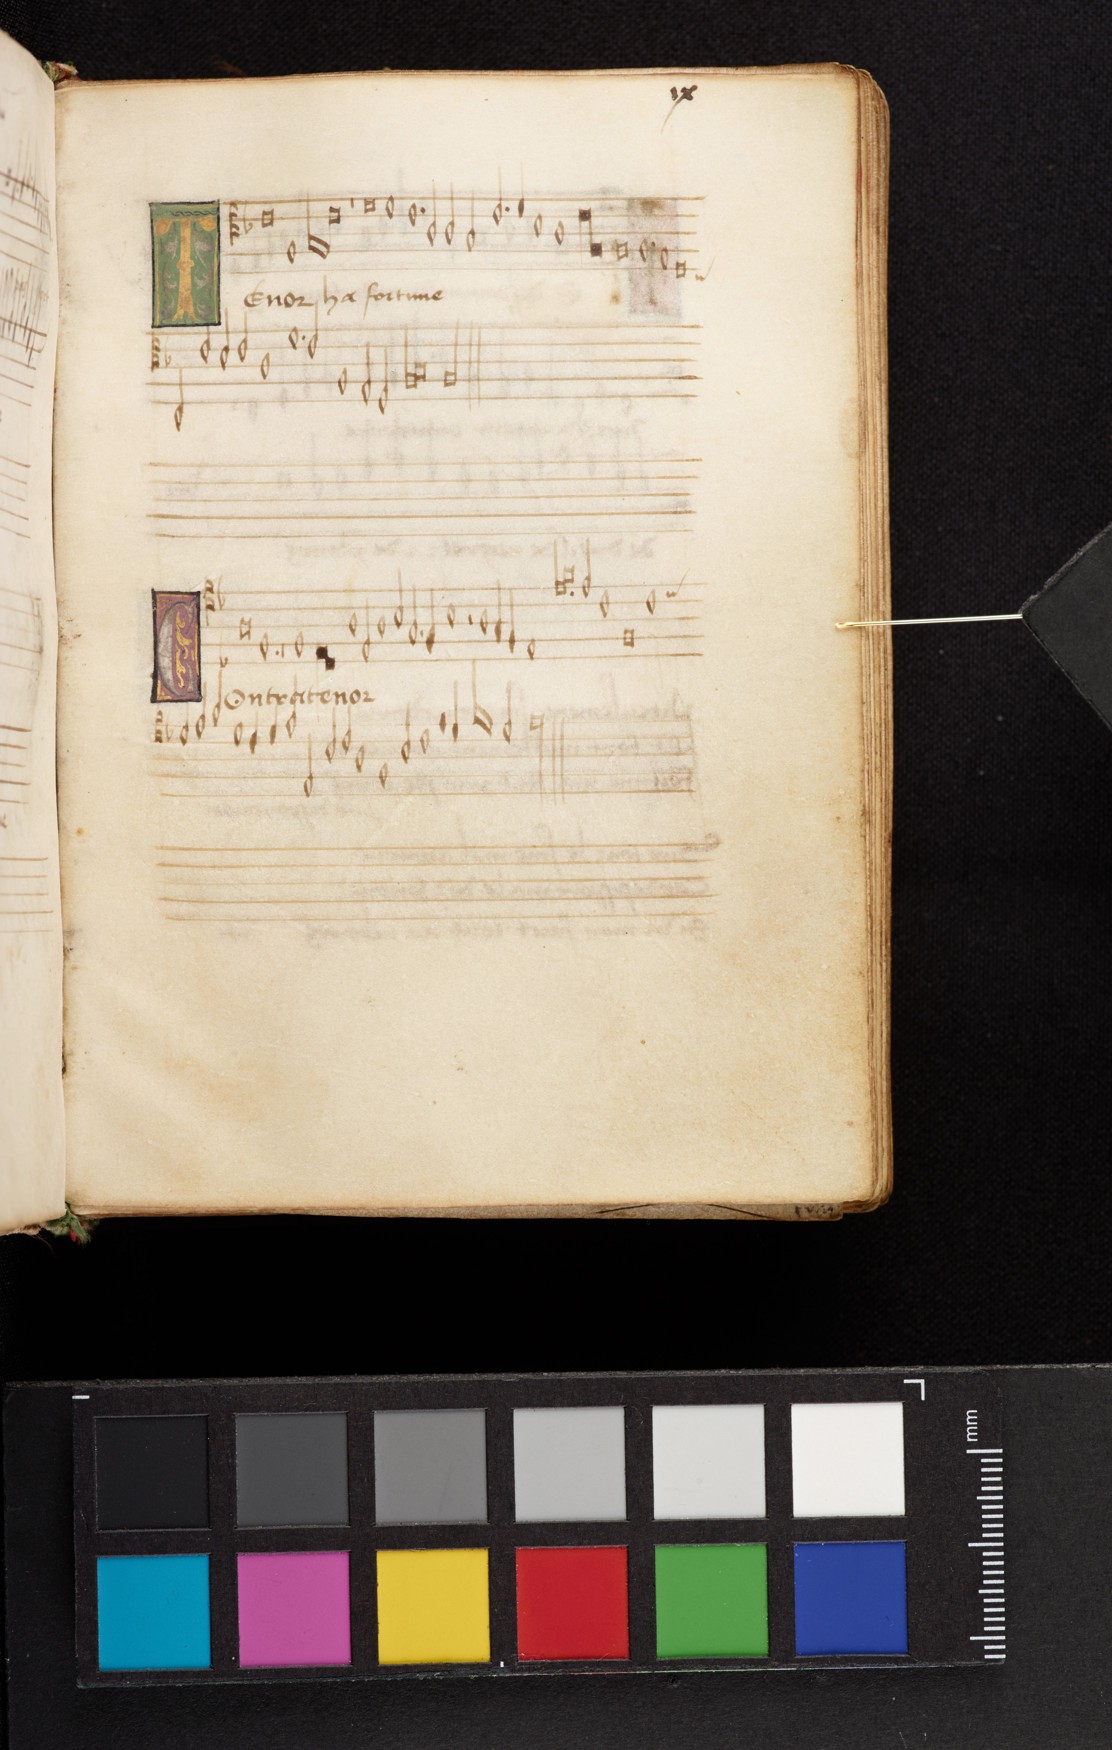 ix
TEnor ha fortune
COntratenor
mm